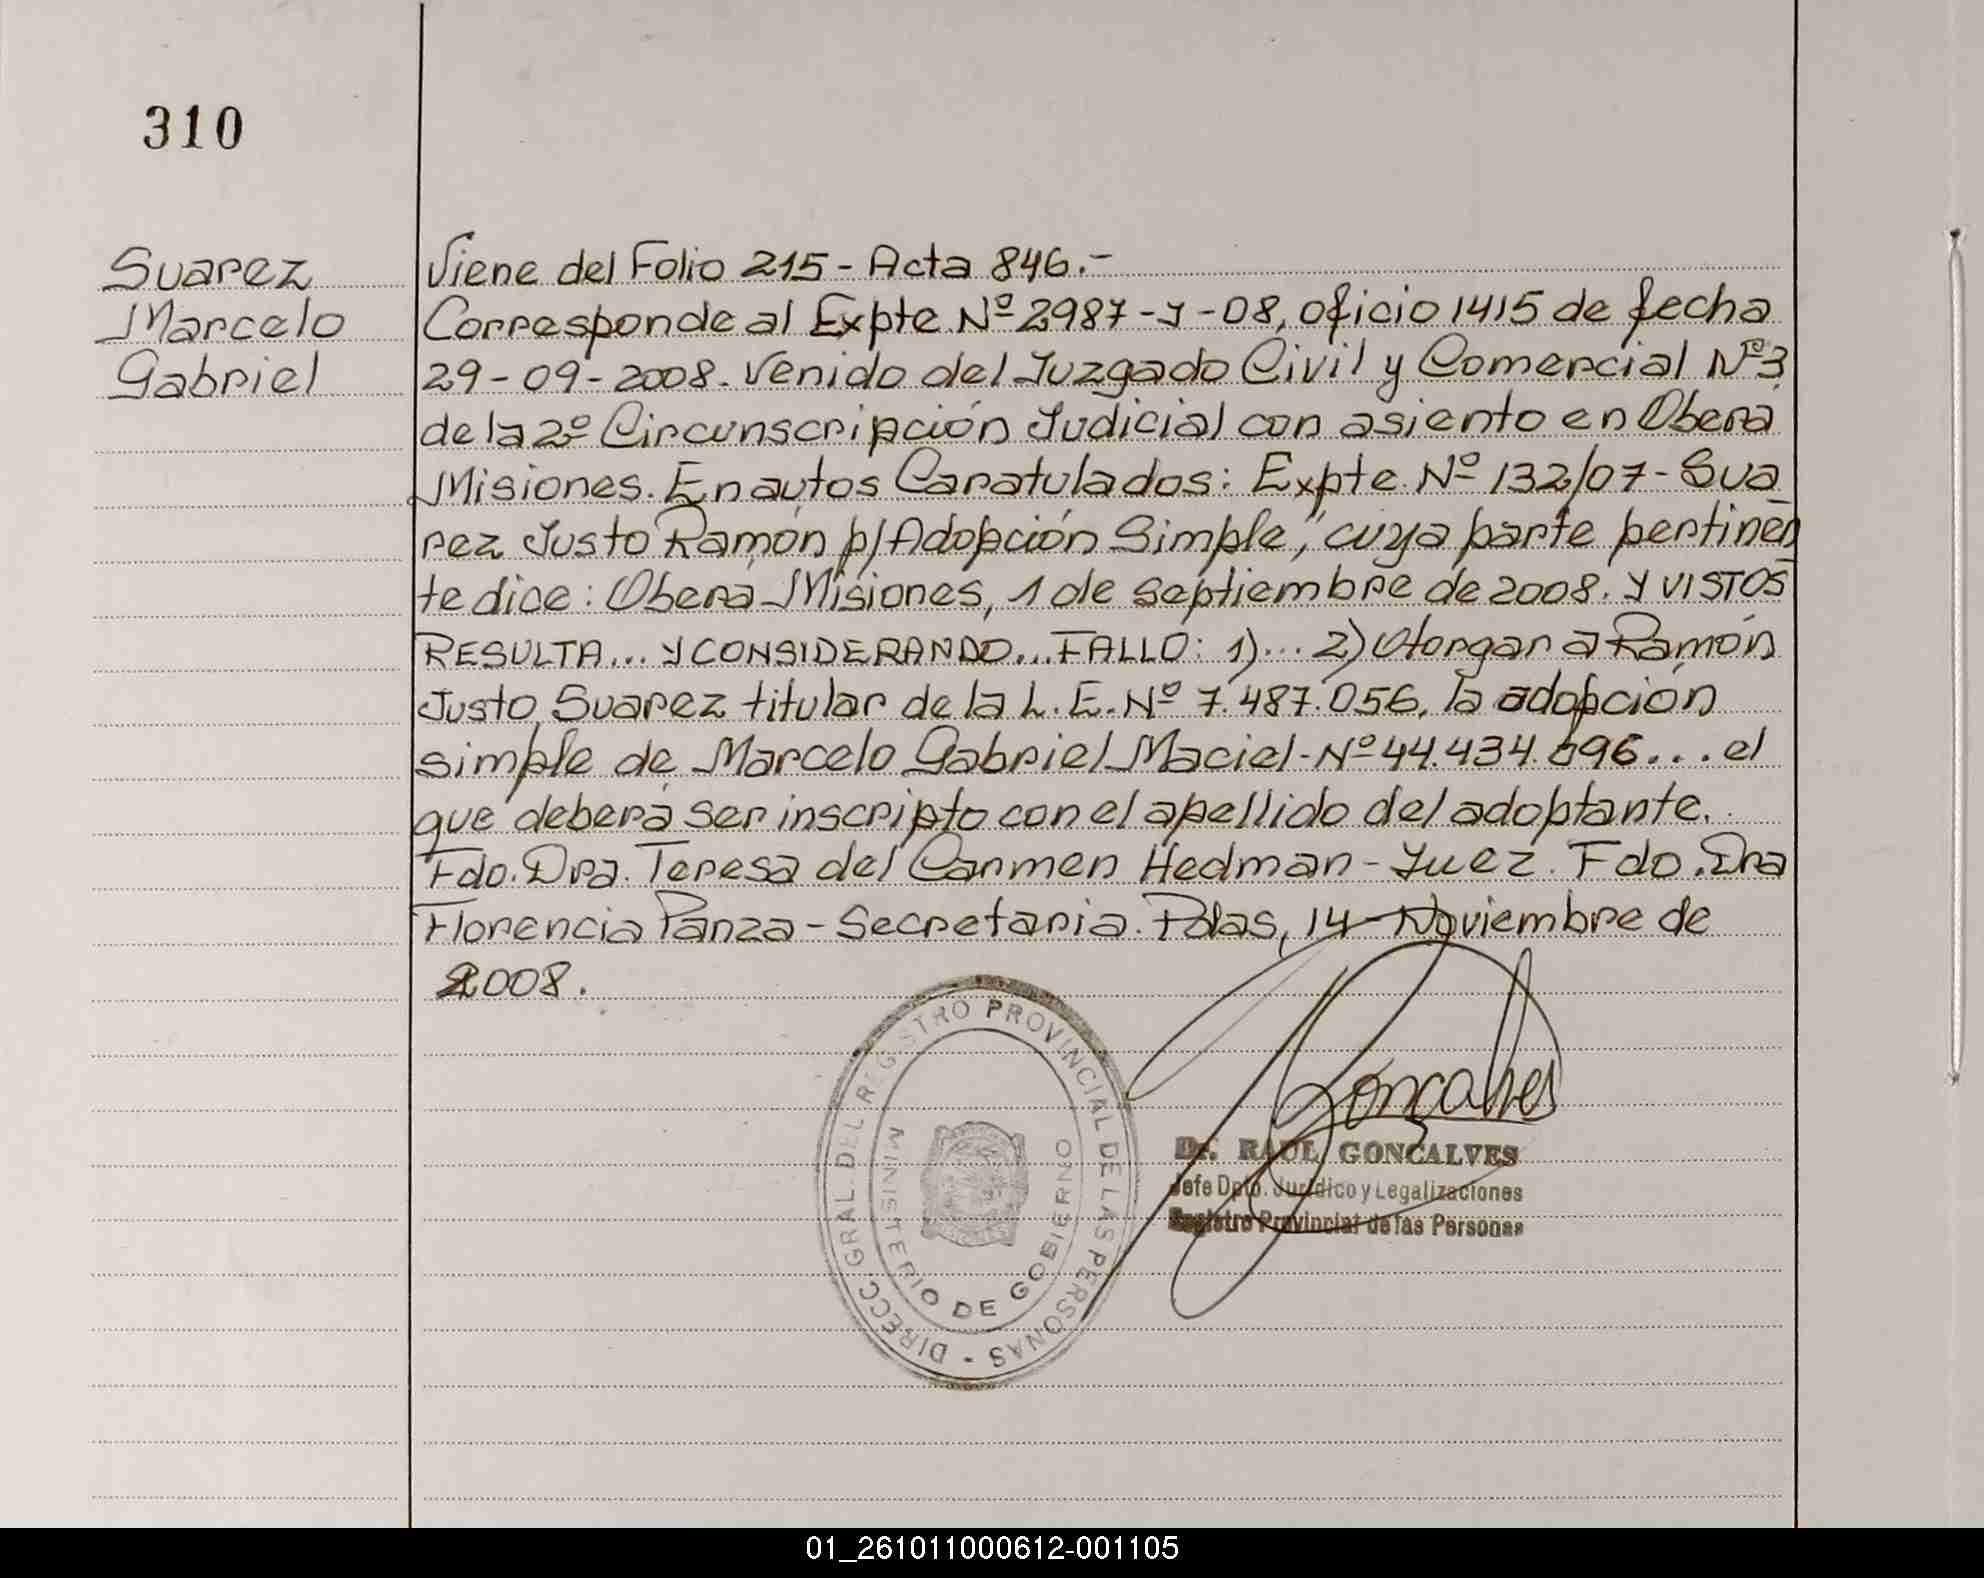 310
Suarez
Marcelo
Gabriel
Viene del Folio 215 - Acta 846.-
Corresponde al Expte Nº 2987-J-08, oficio 1415 de fecha
29-09-2008. Venido del Juzgado Civil y Comercial Nº 3
de la 2º Circunscripción Judicial con asiento en Oberá
Misiones. En autos Caratulados: Expte. Nº 132/07 - Sua
rez Justo Ramón p/Adopción Simple", cuya parte pertinen
te dice: Oberá Misiones, 1 de septiembre de 2008. Y VISTOS
RESULTA... Y CONSIDERANDO... FALLO: 1)... 2) Otorgar a Ramón
Justo Suarez titular de la L.E. Nº 7.487.056, la adopción
simple de Marcelo Gabriel Maciel - Nº 44.434.696... el
que deberá ser inscripto con el apellido del adoptante.
Fdo. Dra. Teresa del Carmen Hedman - Juez. Fdo. Dra
Florencia Panza - Secretaria. Pdas, 14 Noviembre de
2008.
DIRECC GRAL. DEL REGISTRO PROVINCIAL DE LAS PERSONAS -
MINISTERIO DE GOBIERNO
Goncalves
Dr. RAUL GONCALVES
Jefe Dpto. Jurídico y Legalizaciones
Registro Provincial de las Personas
01_261011000612-001105